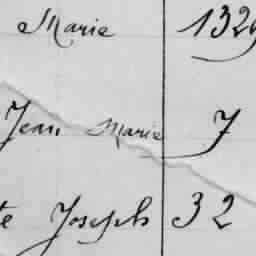 Marie 1329
Jean Marie 7
te Joseph 32